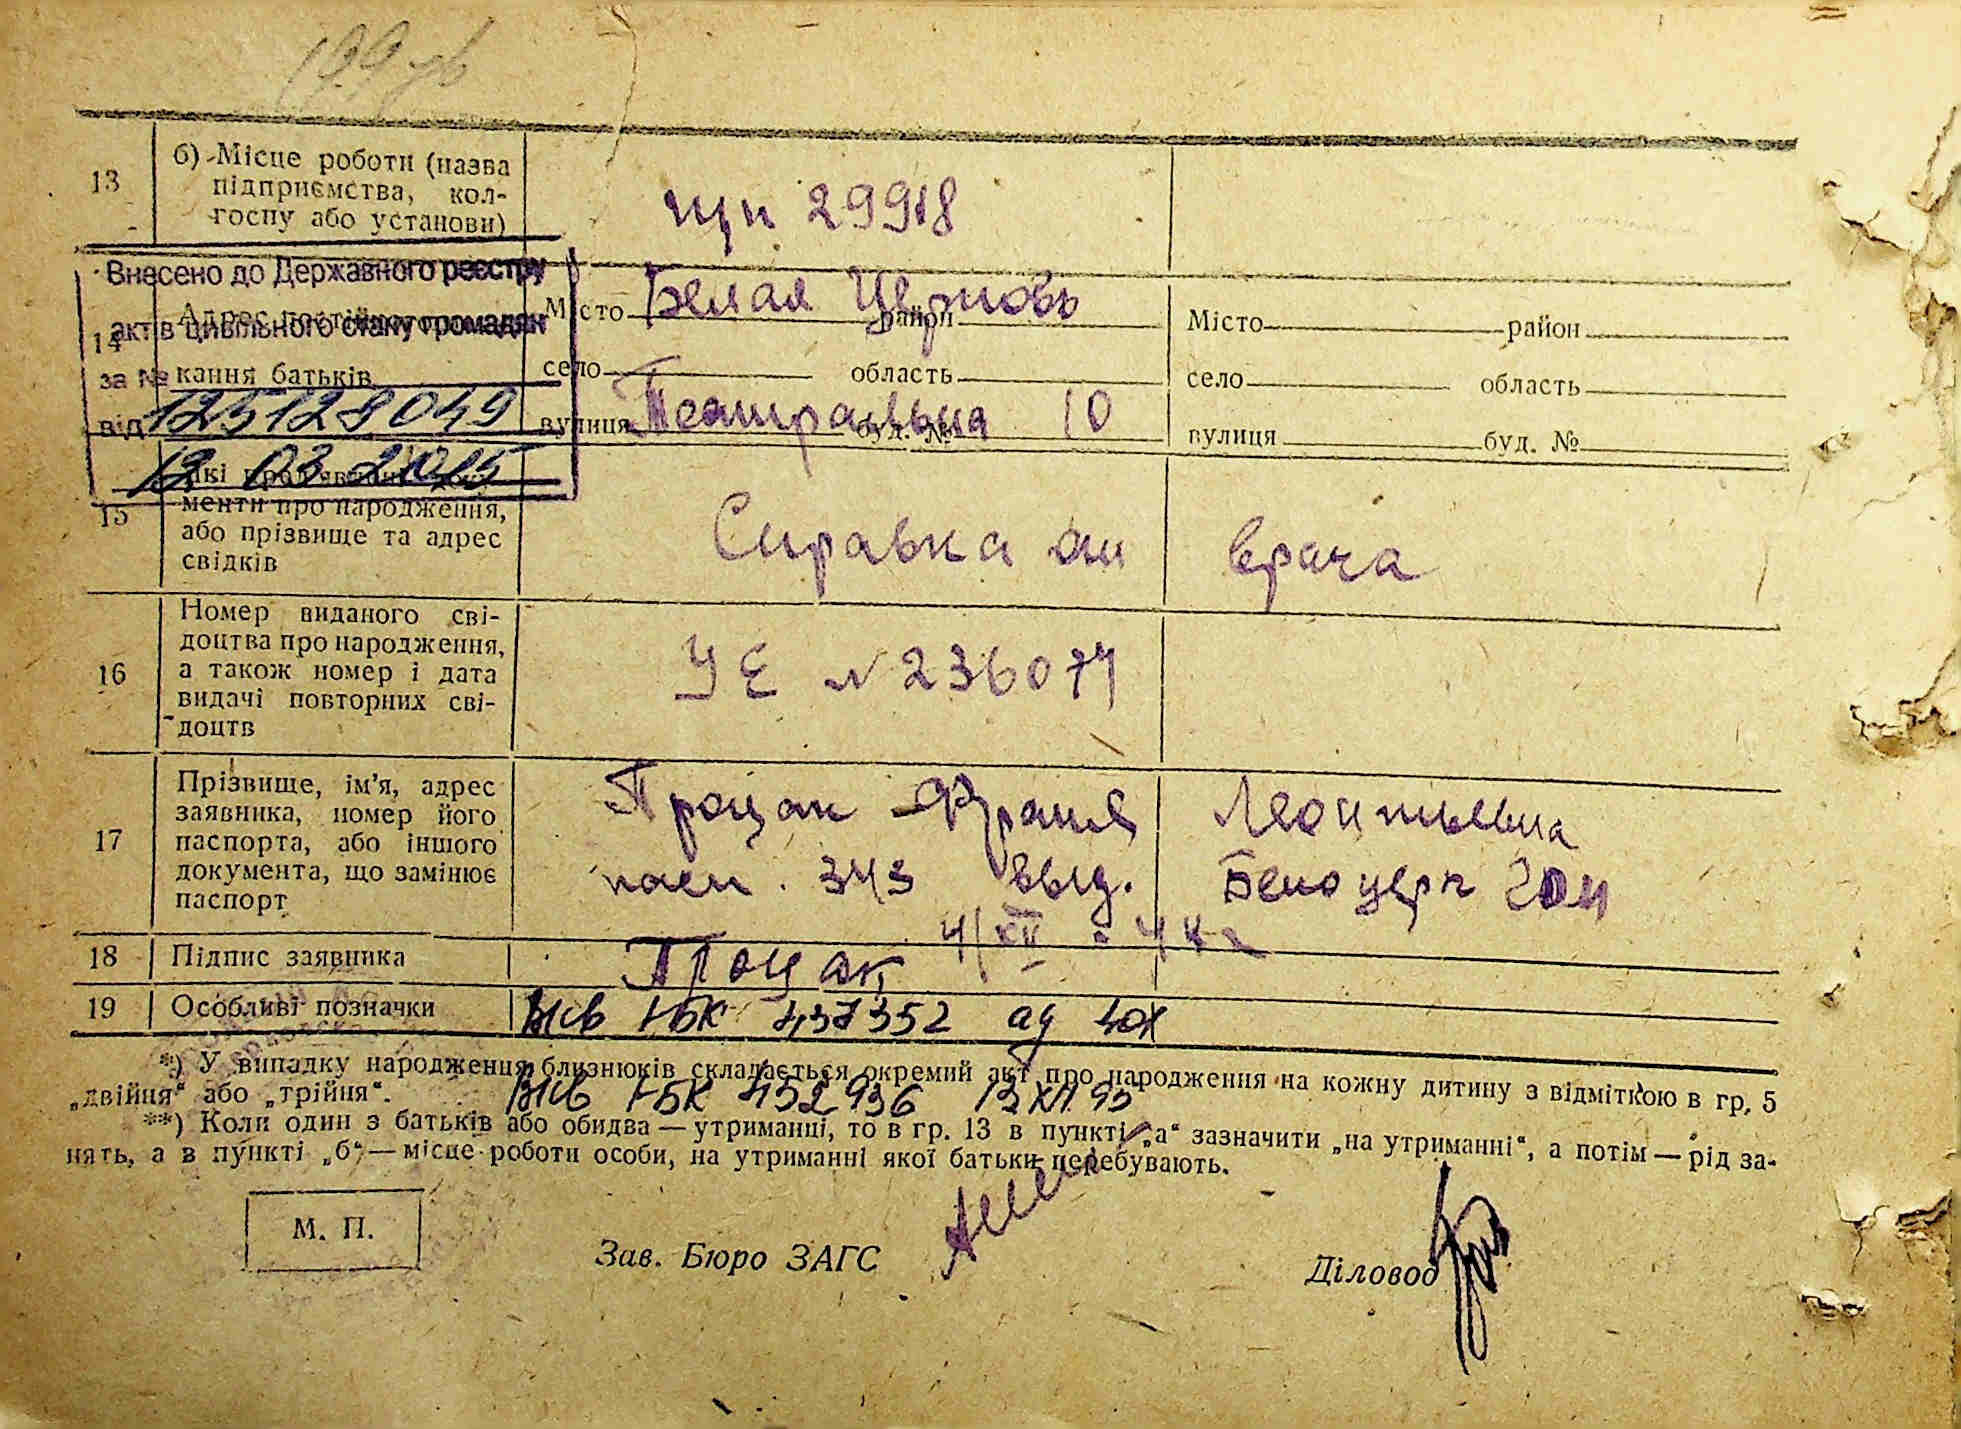 13 б) Місце роботи (назва
підприємства, кол-
госпу або установи)
п/п 29918
Внесено до Державного реєстру
актів цивільного стану громадян
за №
125128049
від
12 03 2015
14 Адрес постійного
кання батьків
Місто Белая Церковь район
село область
вулиця Театральна буд. № 10
Місто район
село область
вулиця буд. №
15 Які пред'явлені доку-
менти про народження,
або прізвище та адрес
свідків
Справка от врача
16 Номер виданого сві-
доцтва про народження,
а також номер і дата
видачі повторних сві-
доцтв
УЕ № 236077
17 Прізвище, ім’я, адрес
заявника, номер його
паспорта, або іншого
документа, що замінює
паспорт
Процак Франя Леонтьевна
пасп. 343 выд. Белоцерк ГОМ
18 Підпис заявника
Процак
19 Особливі позначки
I-БК
*) У випадку народження близнюків складається окремий акт про народження на кожну дитину з відміткою в гр. 5
„двійня“ або „трійня“.
I-БК 452936
**) Коли один з батьків або обидва — утриманці, то в гр. 13 в пункті „а“ зазначити „на утриманні“, а потім — рід за-
нять, а в пункті „б“ — місце роботи особи, на утриманні якої батьки перебувають.
М. П.
Зав. Бюро ЗАГС
Діловод